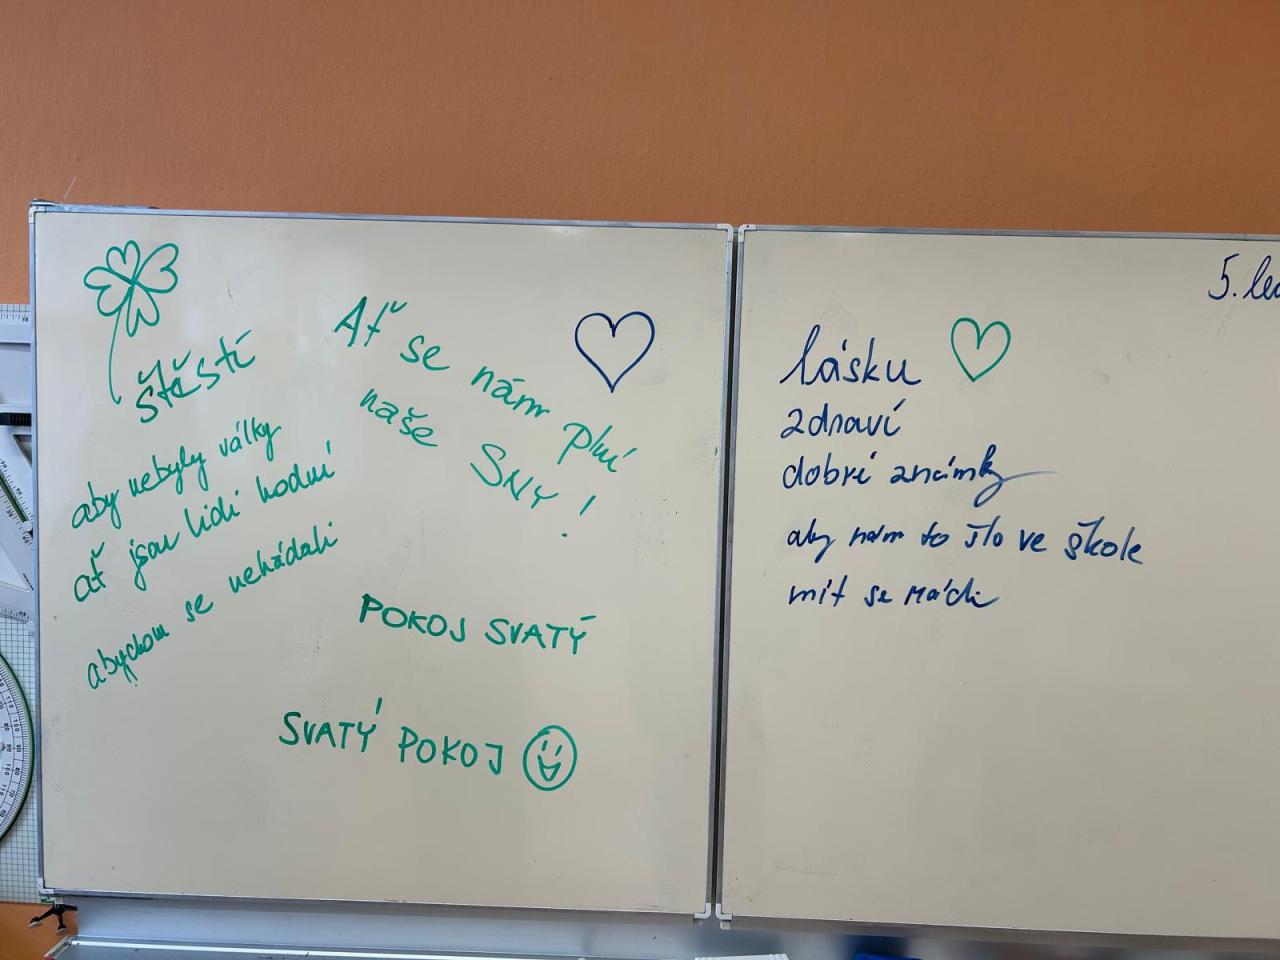 štěstí
aby nebyly války
ať jsou lidi hodní
abychom se nehádali
Ať se nám plní
naše SNY!
POKOJ SVATÝ
SVATÝ POKOJ
5. led
lásku
zdraví
dobré známky
aby nám to šlo ve škole
mít se rádi